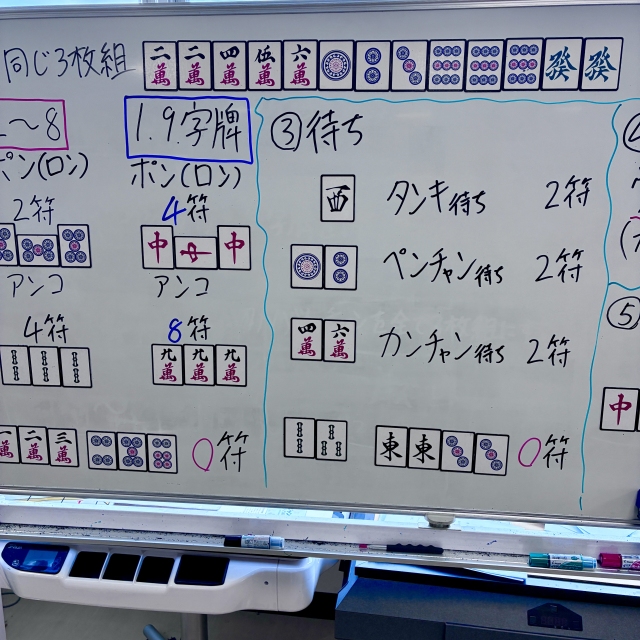 同じ3枚組
二萬 二萬 四萬 伍萬 六萬 發 發
~8
1.9.字牌
ポン(ロン)
ポン(ロン)
2符
4符
中 中 中
アンコ
アンコ
4符
8符
九萬 九萬 九萬
一萬 二萬 三萬
0符
③待ち
西 タンキ待ち 2符
ペンチャン待ち 2符
四萬 六萬 カンチャン待ち 2符
東 東 0符
⑤
中